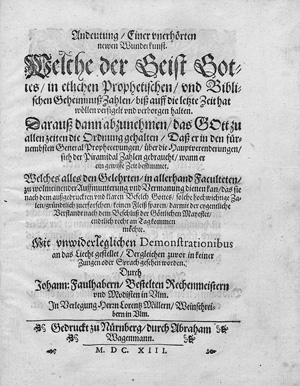 Andeutung / Einer vnerhörten
newen Wunderkunst.
Welche der Geist Got-
tes / in etlichen Prophetischen / vnd Bibli-
schen Geheimnuß Zahlen / biß auff die letzte Zeit hat
wöllen versigelt vnd verborgen halten.
Darauß dann abzunehmen / das GOtt zu
allen zeiten die Ordnung gehalten / Daß er in den für-
nembsten General Propheceyungen / über die Hauptveränderungen /
sich der Piramidal Zahlen gebraucht / wann er
ein gewisse Zeit bestimmet.
Welches alles den Gelehrten / in allerhand Faculteten /
zu wolmeinender Auffmunterung vnd Vermanung dienen kan / das sie
nach dem außgedruckten vnd klaren Befelch Gottes / solche hochwichtige Zah-
len / gründtlich zuerforschen / keinen Fleiß sparen / darmit der eigentliche
Verstandt nach dem Beschluß der Göttlichen Mayestet /
endtlich recht an Tag kommen
möchte.
Mit vnwiderleglichen Demonstrationibus
an das Liecht gestellet / Dergleichen zuvor in keiner
Zungen oder Sprach gesehen worden.
Durch
Johann: Faulhabern / Bestelten Rechenmeistern
vnd Modisten in Vlm.
In Verlegung Herrn Lorentz Millern / Weinschrei-
bern in Vlm.
Gedruckt zu Nürnberg / durch Abraham
Wagenmann.
M. DC. XIII.